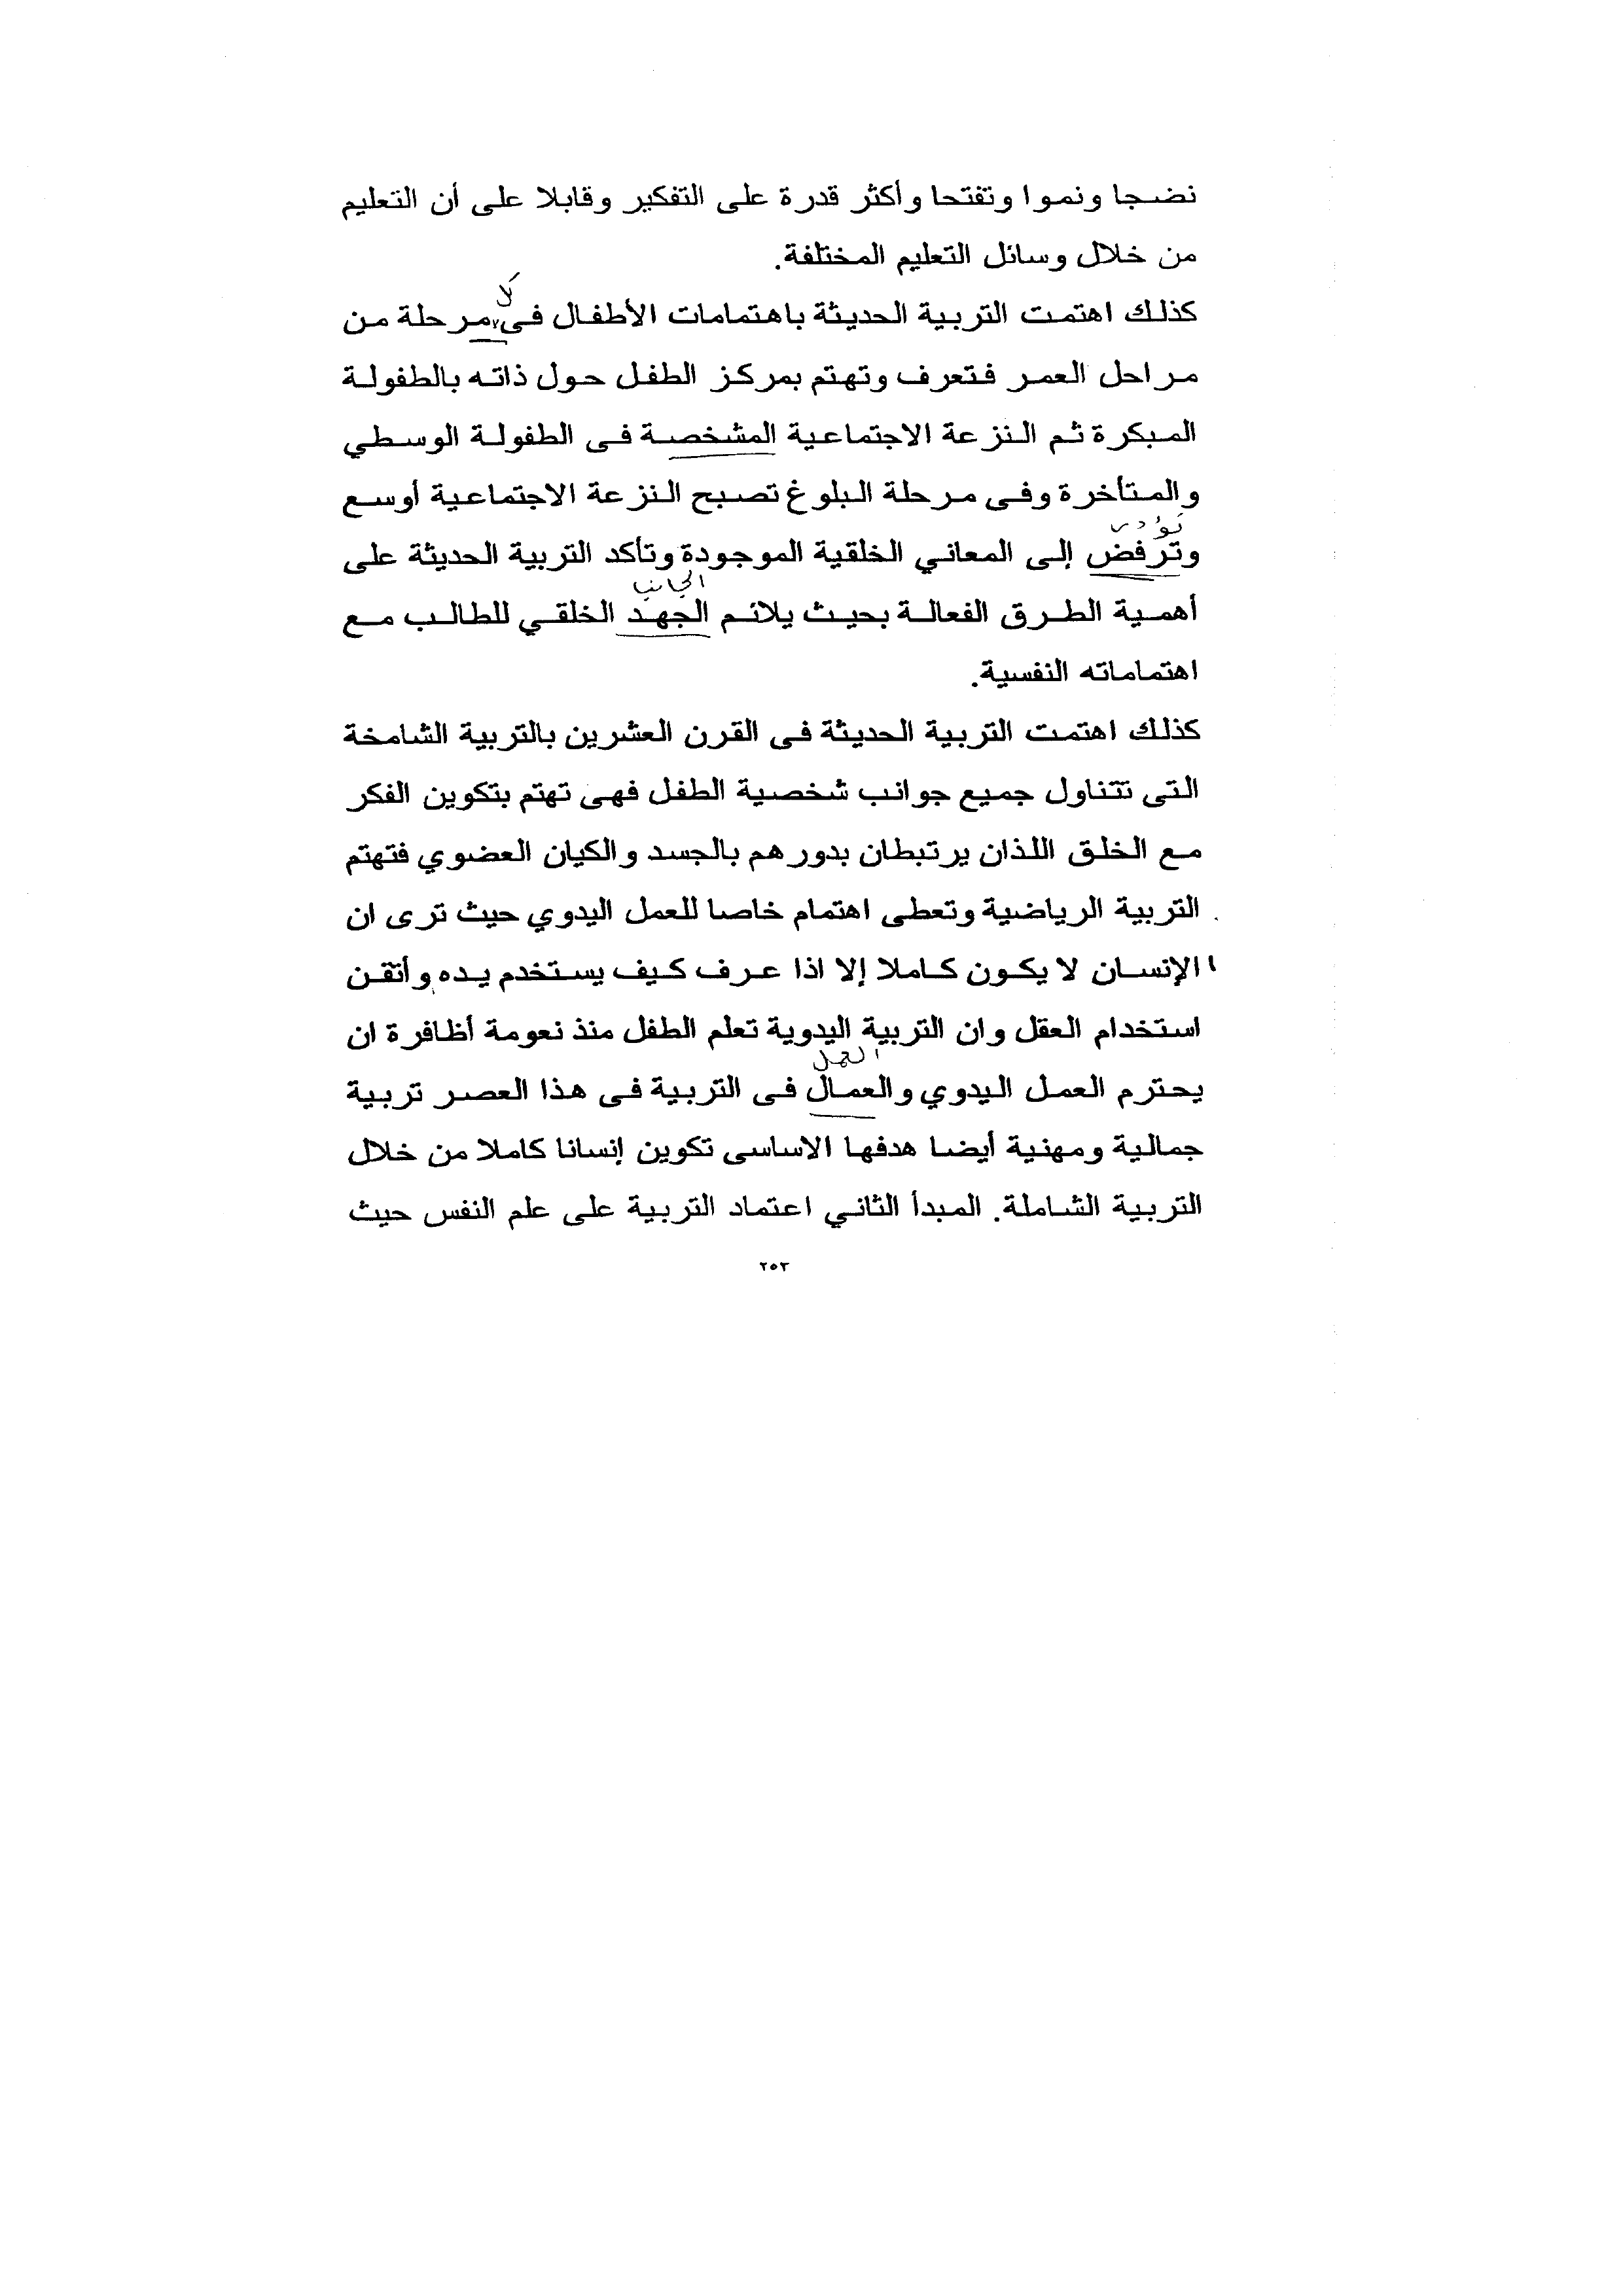 نضجا ونموا وتفتحا وأكثر قدرة على التفكير وقابلا على أن التعليم
من خلال وسائل التعليم المختلفة.
كل
كذلك اهتمت التربية الحديثة باهتمامات الأطفال فى مرحلة من
مراحل العمر فتعرف وتهتم بمركز الطفل حول ذاته بالطفولة
المبكرة ثم النزعة الاجتماعية المشخصة فى الطفولة الوسطي
والمتأخرة وفى مرحلة البلوغ تصبح النزعة الاجتماعية أوسع
تؤدى
وترفض إلى المعاني الخلقية الموجودة وتأكد التربية الحديثة على
الجانب
أهمية الطرق الفعالة بحيث يلائم الجهد الخلقي للطالب مع
اهتماماته النفسية.
كذلك اهتمت التربية الحديثة فى القرن العشرين بالتربية الشامخة
التى تتناول جميع جوانب شخصية الطفل فهى تهتم بتكوين الفكر
مع الخلق اللذان يرتبطان بدورهم بالجسد والكيان العضوي فتهتم
التربية الرياضية وتعطى اهتمام خاصا للعمل اليدوي حيث ترى ان
الإنسان لا يكون كاملا إلا اذا عرف كيف يستخدم يده وأتقن
استخدام العقل وان التربية اليدوية تعلم الطفل منذ نعومة أظافرة ان
العمل
يحترم العمل اليدوي والعمال فى التربية فى هذا العصر تربية
جمالية ومهنية أيضا هدفها الاساسى تكوين إنسانا كاملا من خلال
التربية الشاملة. المبدأ الثاني اعتماد التربية على علم النفس حيث
٢٥٣